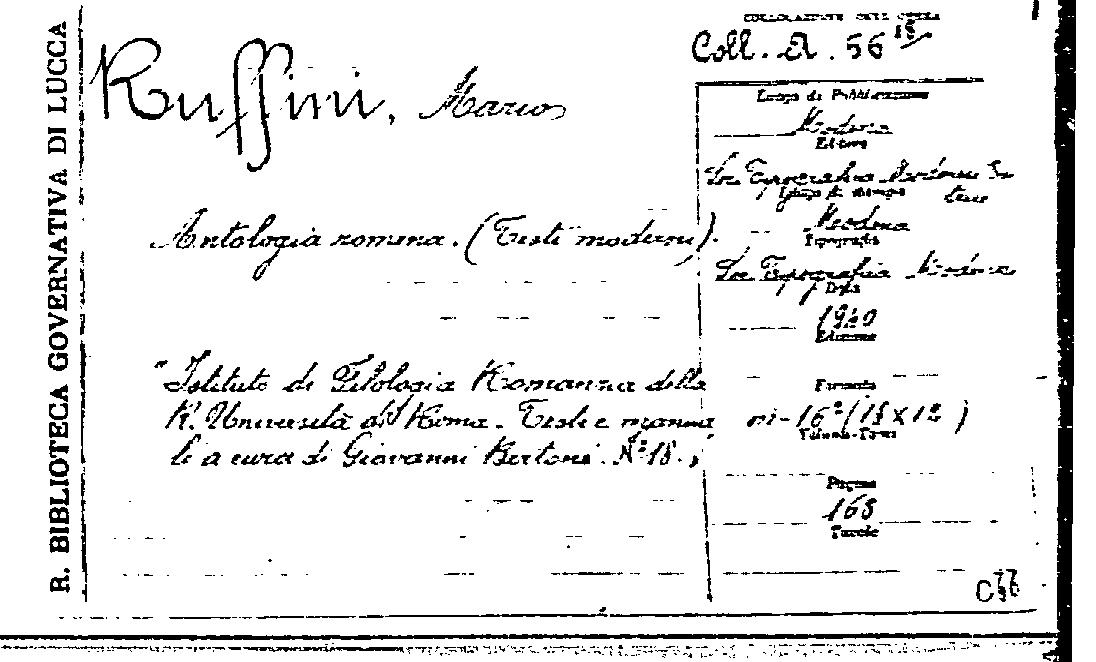 R. BIBLIOTECA GOVERNATIVA DI LUCCA
COLLOCAZIONE DELL'OPERA
Coll. A. 56 18
Ruffini, Mario
Luogo di Pubblicazione
Modena
Editore
Soc. Tipografica Modenese
Luogo di stampa
Modena
Tipografia
Soc. Tipografica Modenese
Data
1940
Edizione
Antologia romena. (Testi moderni).
"Istituto di Filologia Romanza della
R. Università di Roma. Testi e manua
li a cura di Giovanni Bertoni. N° 18.,
Formato
in-16° (18 x 12)
Volume-Tomo
Pagine
168
Tavole